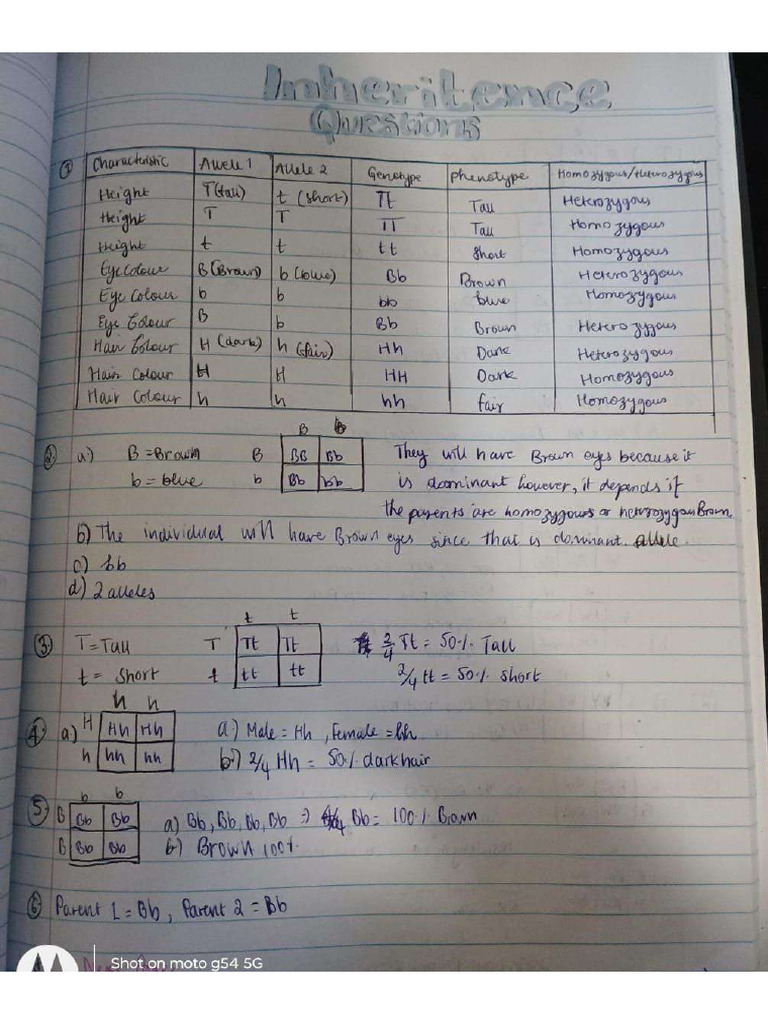 Inheritence
Questions
① Characteristic Allele 1 Allele 2 Genotype Phenotype Homozygous/Heterozygous
Height T(tall) t (short) Tt Tall Heterozygous
Height T T TT Tall Homozygous
Height t t tt Short Homozygous
Eye Colour B(Brown) b(blue) Bb Brown Heterozygous
Eye Colour b b bb blue Homozygous
Eye Colour B b Bb Brown Heterozygous
Hair Colour H (dark) h (fair) Hh Dark Heterozygous
Hair Colour H H HH Dark Homozygous
Hair Colour h h hh fair Homozygous
B b
② a) B = Brown B BB Bb They will have Brown eyes because it
b = blue b Bb bb is dominant however, it depends if
the parents are homozygous or heterozygous Brown
b) The individual will have Brown eyes since that is dominant allele.
c) bb
d) 2 alleles
t t
③ T = Tall T Tt Tt 2/4 Tt = 50% Tall
t = short t tt tt 2/4 tt = 50% short
h h
④ a) H Hh Hh a) Male = Hh, Female = hh
h hh hh b) 2/4 Hh = 50% dark hair
b b
⑤ B Bb Bb a) Bb, Bb, Bb, Bb => 4/4 Bb = 100% Brown
B Bb Bb b) Brown 100%
⑥ Parent 1 = Bb, Parent 2 = Bb
Shot on moto g54 5G